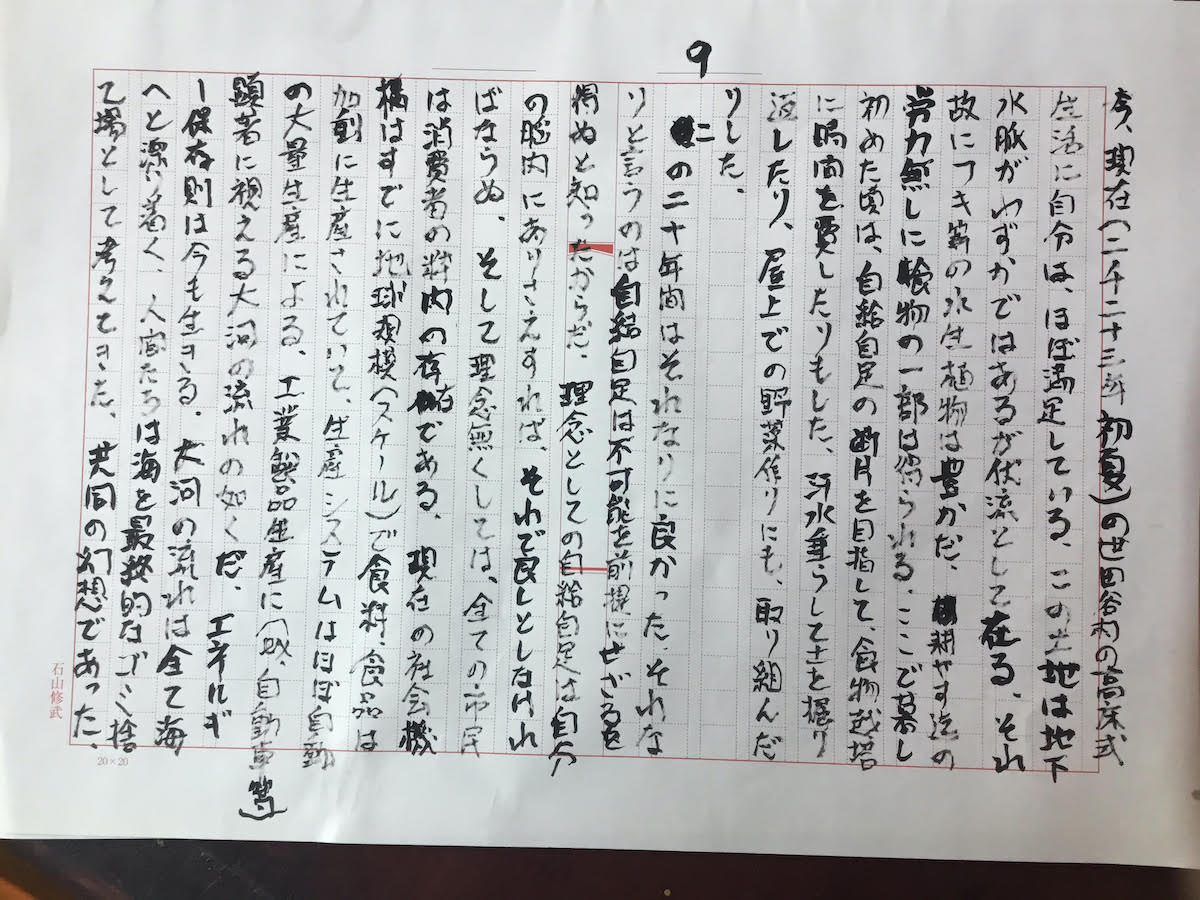 9
今、現在(二千二十三年初夏)の世田谷村の高床式
生活に自分は、ほぼ満足している。この土地は地下
水脈がわずかではあるが伏流として在る。それ
故につき等の水生植物は豊かだ。耕やす迄の
労力無しに食物の一部は得られる。ここで暮し
初めた頃は、自給自足の断片を目指して、食物栽培
に時間を費したりもした。汗水垂らして土を掘り
返したり、屋上での野菜作りにも、取り組んだ
りした。
この二十年間はそれなりに良かった。それな
りと言うのは自給自足は不可能を前提にせざるを
得ぬと知ったからだ。理念としての自給自足は自分
の脳内にありさえすれば、それで良しとしなけれ
ばならぬ。そして理念無くしては、全ての市民
は消費者の枠内の存在である。現在の社会機
構はすでに地球規模(スケール)で食料、食品は
加剰に生産されていて、生産システムはほぼ自動
の大量生産による。工業製品生産に(故、自動車等)
顕著に視える大河の流れの如くだ。エネルギ
ー保存則は今も生きる。大河の流れは全て海
へと漂り着く。人間たちは海を最終的なゴミ捨
て場として考えてきた。共同の幻想であった。
石山修武
20×20